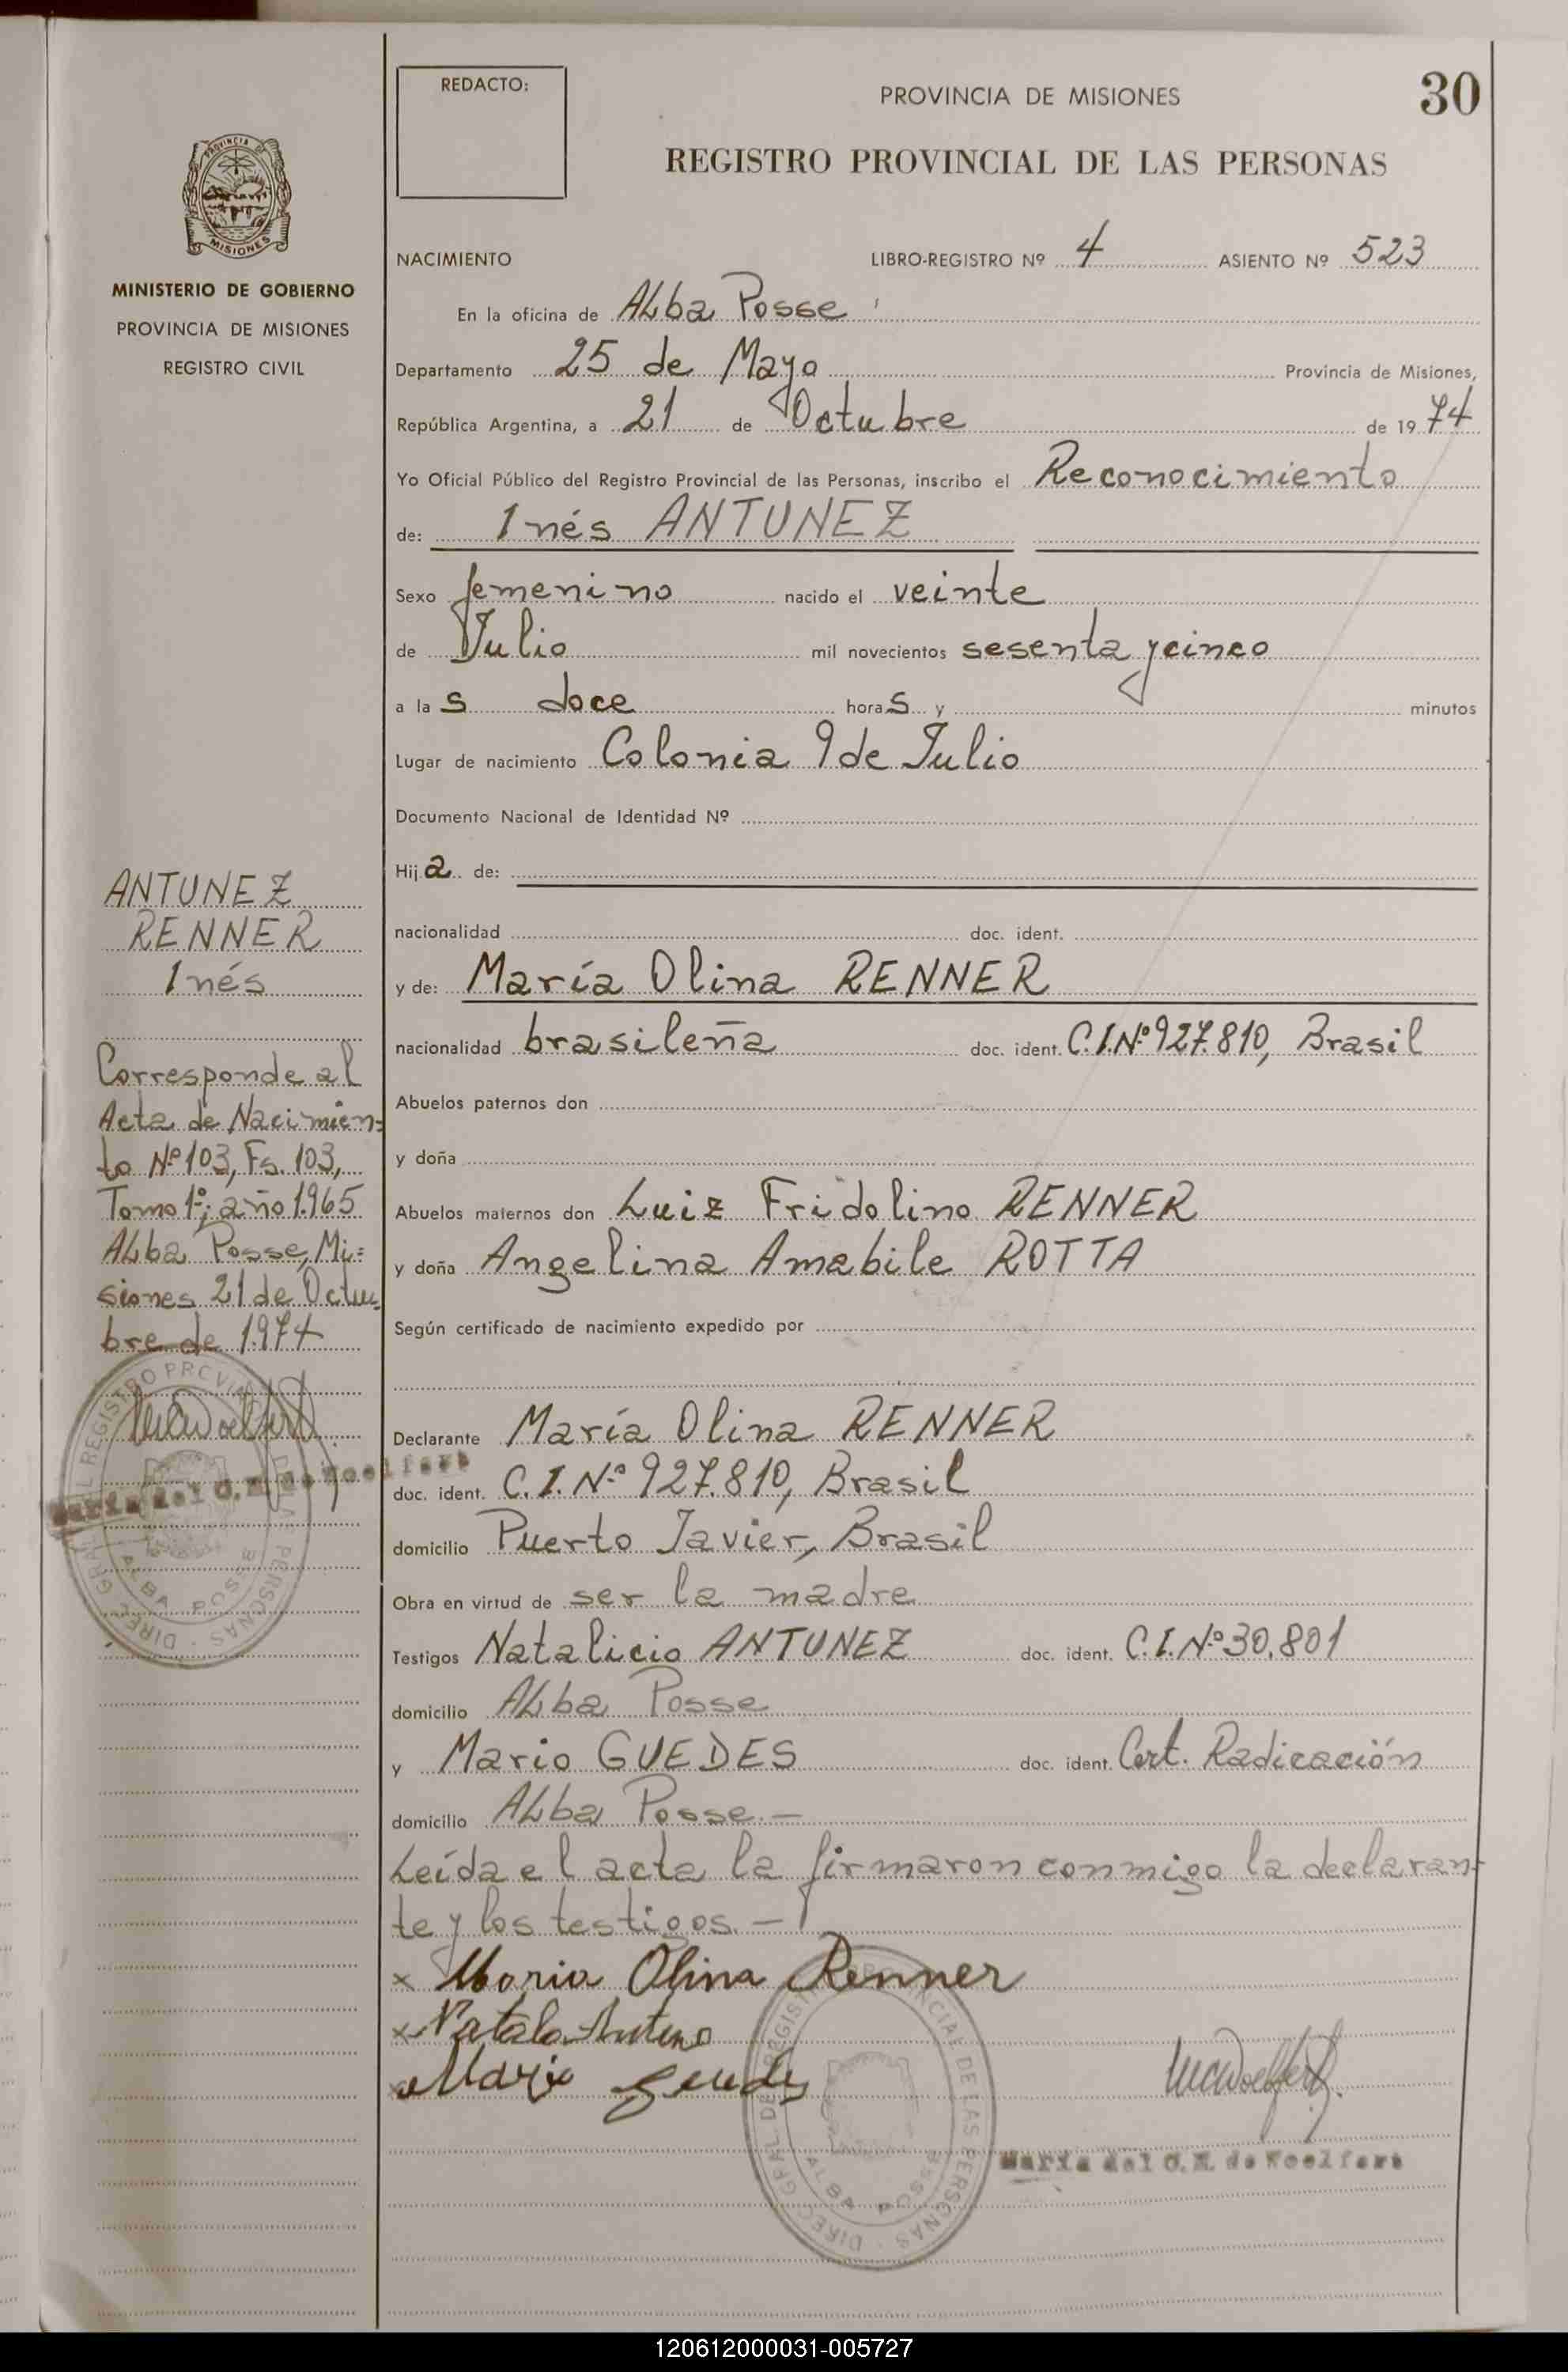 REDACTO:
PROVINCIA DE MISIONES
30
REGISTRO PROVINCIAL DE LAS PERSONAS
PROVINCIA DE
MISIONES
MINISTERIO DE GOBIERNO
PROVINCIA DE MISIONES
REGISTRO CIVIL
NACIMIENTO LIBRO-REGISTRO Nº 4 ASIENTO Nº 523
En la oficina de Alba Posse
Departamento 25 de Mayo Provincia de Misiones,
República Argentina, a 21 de Octubre de 1974
Yo Oficial Público del Registro Provincial de las Personas, inscribo el Reconocimiento
de: Inés ANTUNEZ
Sexo femenino nacido el veinte
de Julio mil novecientos sesenta y cinco
a las doce horas y minutos
Lugar de nacimiento Colonia 9 de Julio
Documento Nacional de Identidad Nº
Hija de:
nacionalidad doc. ident.
y de: María Olina RENNER
nacionalidad brasileña doc. ident. C.I.Nº 927.810, Brasil
Abuelos paternos don
y doña
Abuelos maternos don Luiz Fridolino RENNER
y doña Angelina Amabile ROTTA
Según certificado de nacimiento expedido por
Declarante María Olina RENNER
doc. ident. C.I.Nº 927.810, Brasil
domicilio Puerto Javier, Brasil
Obra en virtud de ser la madre
Testigos Natalicio ANTUNEZ doc. ident. C.I.Nº 30.801
domicilio Alba Posse
y Mario GUEDES doc. ident. Cert. Radicación
domicilio Alba Posse.—
Leída el acta la firmaron conmigo la declaran-
te y los testigos.—
x Maria Olina Renner
María del C.M. de Woelfert
ANTUNEZ
RENNER
Inés
Corresponde al
Acta de Nacimien-
to Nº 103, Fs. 103,
Tomo 1º; año 1.965
Alba Posse, Mi=
siones 21 de Octu-
bre de 1.974
María del C.M. de Woelfert
DIREC. GRAL DEL REGISTRO PROVINCIAL DE LAS PERSONAS
ALBA POSSE
120612000031-005727